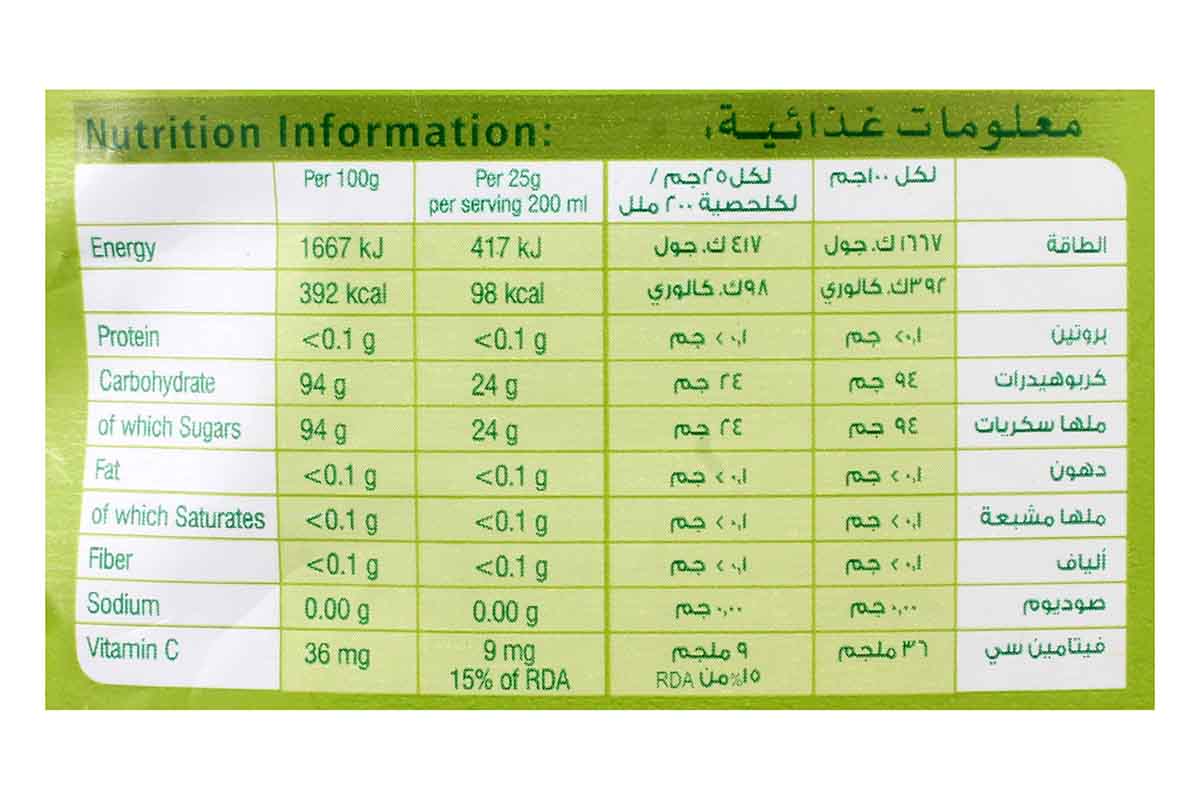 Nutrition Information: معلومات غذائية،
Per 100g Per 25g لكل ٢٥جم / لكل ١٠٠جم
per serving 200 ml لكلحصية ٢٠٠ ملل
Energy 1667 kJ 417 kJ ٤١٧ ك. جول ١٦٦٧ ك. جول الطاقة
392 kcal 98 kcal ٩٨ك. كالوري ٣٩٢ك. كالوري
Protein <0.1 g <0.1 g ٠,١ > جم ٠,١> جم بروتين
Carbohydrate 94 g 24 g ٢٤ جم ٩٤ جم كربوهيدرات
of which Sugars 94 g 24 g ٢٤ جم ٩٤ جم ملها سكريات
Fat <0.1 g <0.1 g ٠,١ > جم ٠,١> جم دهون
of which Saturates <0.1 g <0.1 g ٠,١ > جم ٠,١> جم ملها مشبعة
Fiber <0.1 g <0.1 g ٠,١ > جم ٠,١ > جم ألياف
Sodium 0.00 g 0.00 g ٠,٠٠ جم ٠,٠٠ جم صوديوم
Vitamin C 36 mg 9 mg ٩ ملجم ٣٦ ملجم فيتامين سي
15% of RDA ١٥%من RDA